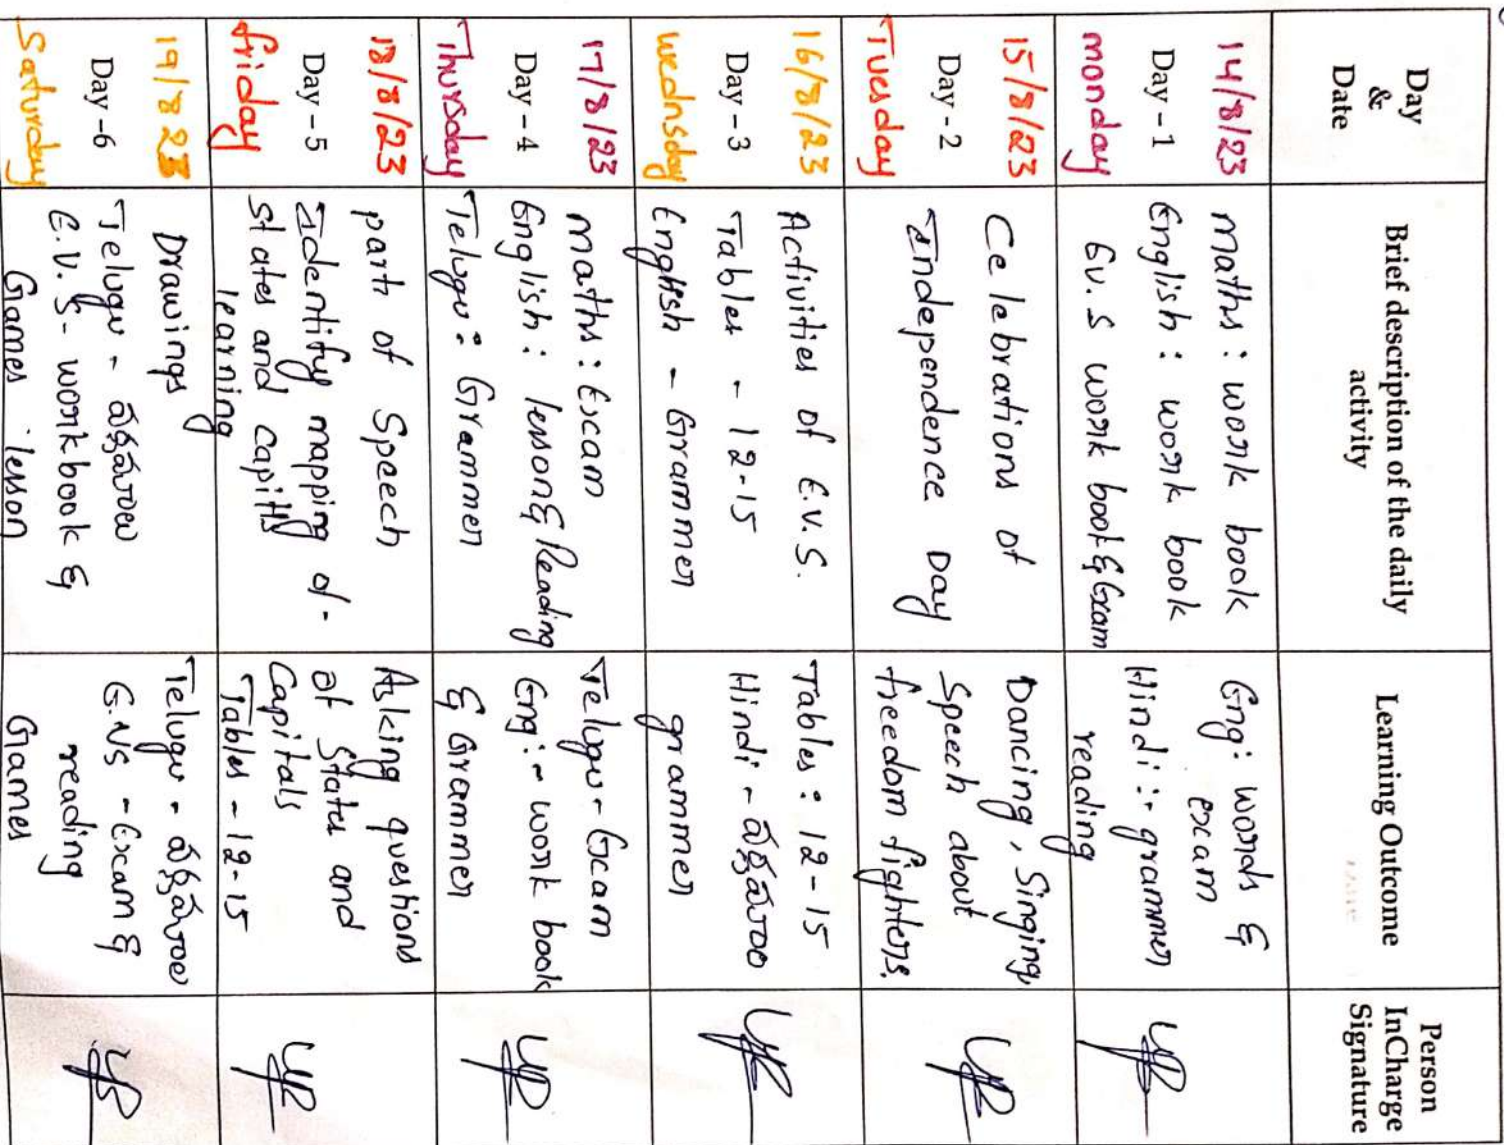 Day
&
Date
Brief description of the daily
activity
Learning Outcome
Person
InCharge
Signature
14/8/23
Day - 1
monday
maths : work book
English : work book
Ev.s work book & Exam
Eng: words &
exam
Hindi :- grammer
reading
15/8/23
Day - 2
Tuesday
Celebrations of
Independence Day
Dancing, Singing,
Speech about
freedom fighters.
16/8/23
Day - 3
wednsday
Activities of E.V.S.
Tables - 12-15
English - Grammer
Tables : 12-15
Hindi -
grammer
17/8/23
Day - 4
Thursday
maths : Exam
English : lesson & Reading
Telugu : Grammer
Telugu - Exam
Eng :- work book
& Grammer
18/8/23
Day - 5
friday
parts of Speech
Identify mapping of -
states and capitls
learning
Asking questions
of States and
Capitals
Tables - 12-15
19/8 23
Day - 6
Saturday
Drawings
Telugu -
E.V.S - workbook &
Games lesson
Telugu -
E.VS - Exam &
reading
Games